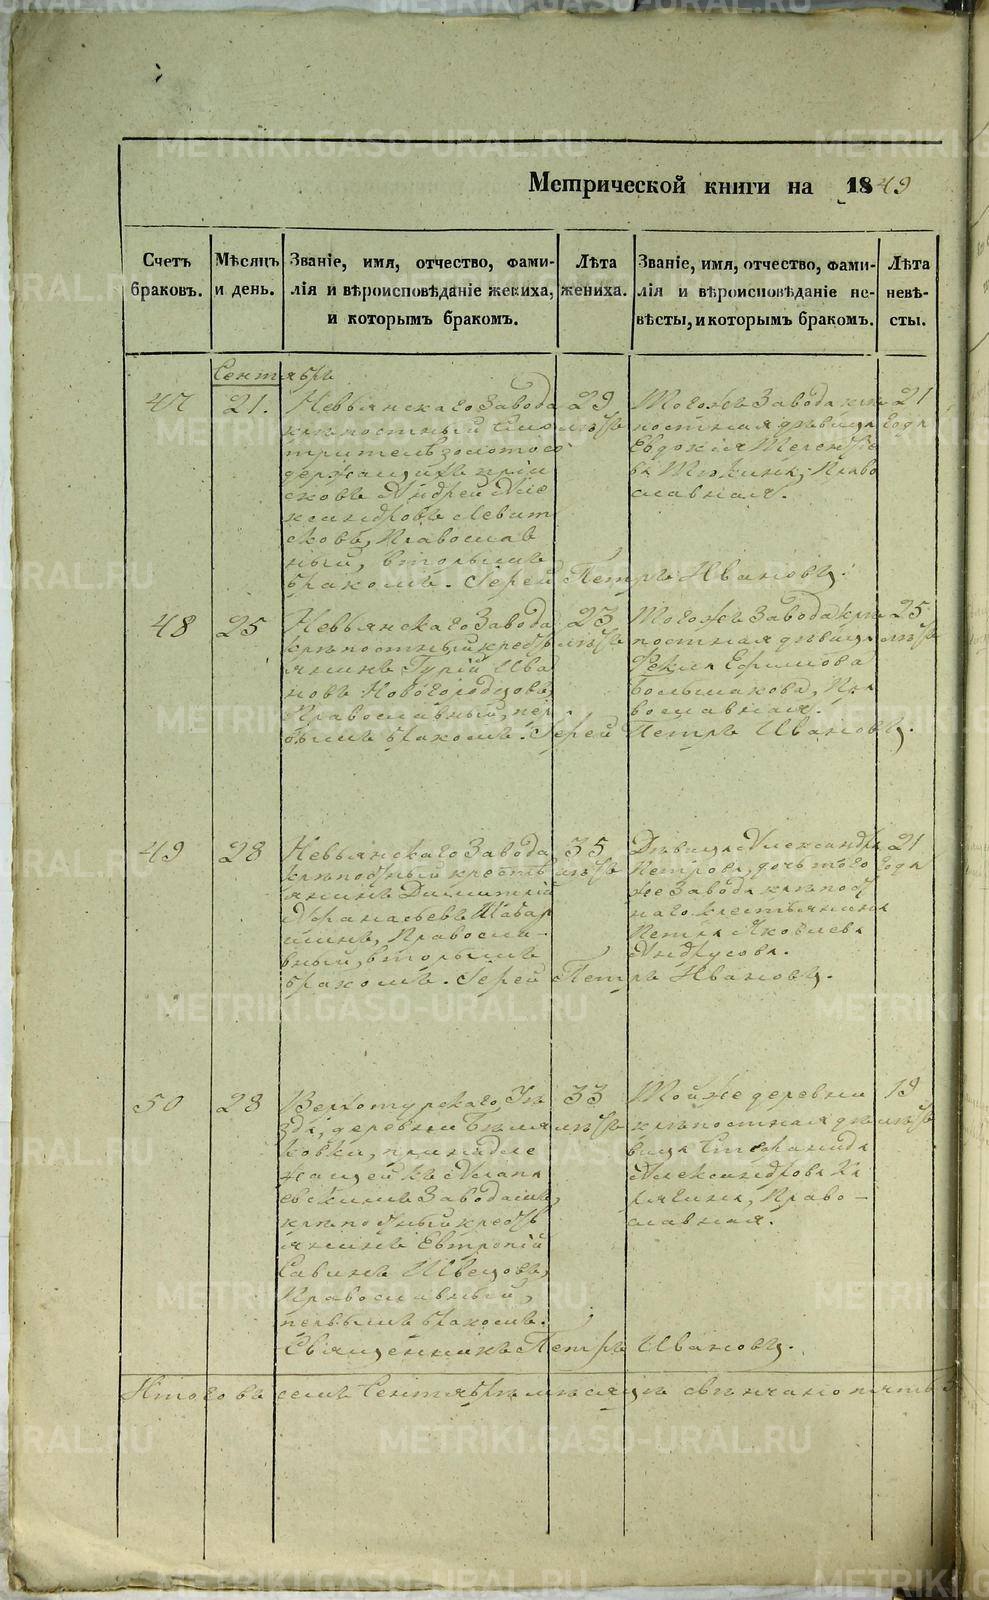 Метрической книги на 1849
Счетъ браковъ.
Мѣсяцъ и день.
Званіе, имя, отчество, фами-
лія и вѣроисповѣданіе жениха,
и которымъ бракомъ.
Лѣта жениха.
Званіе, имя, отчество, фами-
лія и вѣроисповѣданіе не-
вѣсты, и которымъ бракомъ.
Лѣта невѣ-
сты.
Сентябрь
47
21.
Невьянскаго Завода
крѣпостный смо
тритель золотосо
держащихъ прііи
сковъ Андрей Але
ксандровъ Левит
сковъ, Православ
ный, вторымъ
бракомъ. Іерей Петръ Ивановъ.
29
лѣтъ
Тогоже Завода крѣ
постная дѣвица
Евдокія Терентье
ва, Право
славная.
21
года
48
25
Невьянскаго Завода
крѣпостный кресть
янинъ Гурій Ива
новъ Новогородцовъ,
Православный, пер
вымъ бракомъ. Іерей Петръ Ивановъ.
23
лѣтъ
Тогоже Завода крѣ
постная дѣвица
Фекла Ефимова
Большакова, Пра
вославная.
25
лѣтъ
49
28
Невьянскаго Завода
крѣпостный кресть
янинъ Димитрій
Афанасьевъ
Правосла-
вный, вторымъ
бракомъ. Іерей Петръ Ивановъ.
35
лѣтъ
Дѣвица Александра
Петрова, дочь того
же Завода крѣпост
наго крестьянина
Петра Яковлева
Андрусова.
21
года
50
28
Верхотурскаго Уѣ
зда, деревни Бѣля
ковки, принадле
жащей къ Алапа
евскимъ Заводамъ,
крѣпостный кресть
янинъ Евтропій
Савинъ Швецовъ,
Православный,
первымъ бракомъ.
Священникъ Петръ Ивановъ.
33
лѣтъ
Тойже деревни
крѣпостная дѣ
вица Стефанида
Александрова Ка
рягина, Право-
славная.
19
лѣтъ
Итого въ семъ Сентябрѣ мѣсяцѣ свѣнчано пять
METRIKI.GASO-URAL.RU